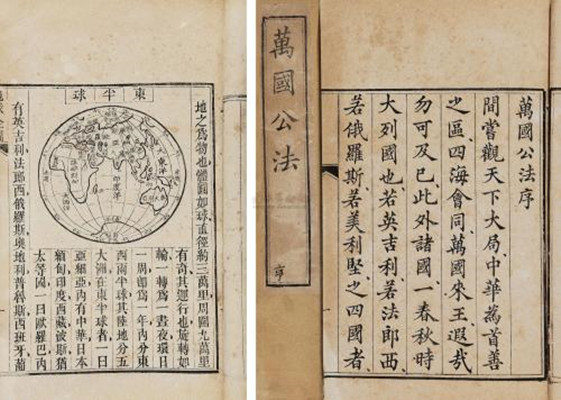 東半球
地之爲物也體圓如球直徑約三萬里周圍九萬里
有奇其運行也旋轉如
輪一轉爲一晝夜環日
一周卽爲一年內分東
西兩半球其陸地分五
大洲在東半球者一曰
亞細亞內有中華日本
緬甸印度西藏波斯猶
太等國一曰歐羅巴內
有英吉利法郎西俄羅斯奧地利普魯斯西班牙葡
東洋
印度洋
大西洋
萬國公法
萬國公法序
間嘗觀天下大局中華爲首善
之區四海會同萬國來王遐哉
勿可及已此外諸國一春秋時
大列國也若英吉利若法郎西
若俄羅斯若美利堅之四國者